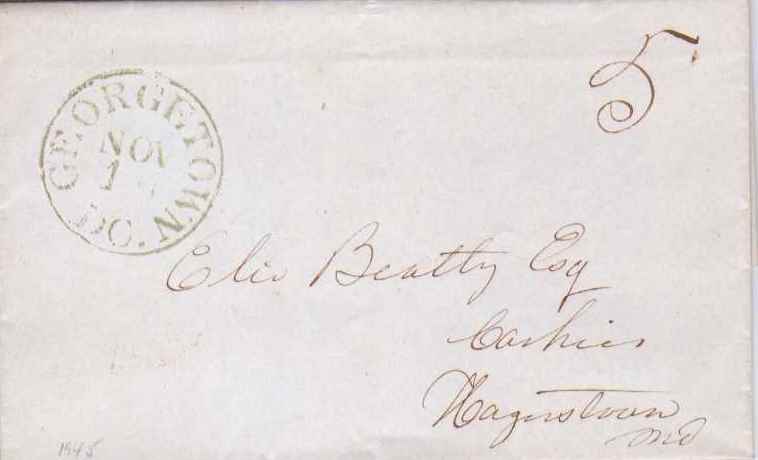 5
GEORGETOWN
NOV
1
D.C.
Elie Beatty Esq
Cashier
Hagerstown
Md
1845